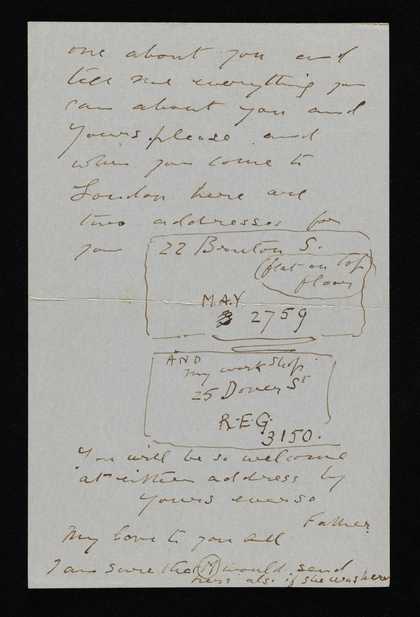 one about you and
tell me everything you
can about you and
yours please and
when you come to
London here are
two addresses for
you
22 Bruton S.
(flat on top
floor
MAY
2759
AND
my workshop
25 Dover St
R.E.G.
3150.
You will be so welcome
at either address by
yours ever so
Father
My love to you all
I am sure that M would send
hers also if she was here